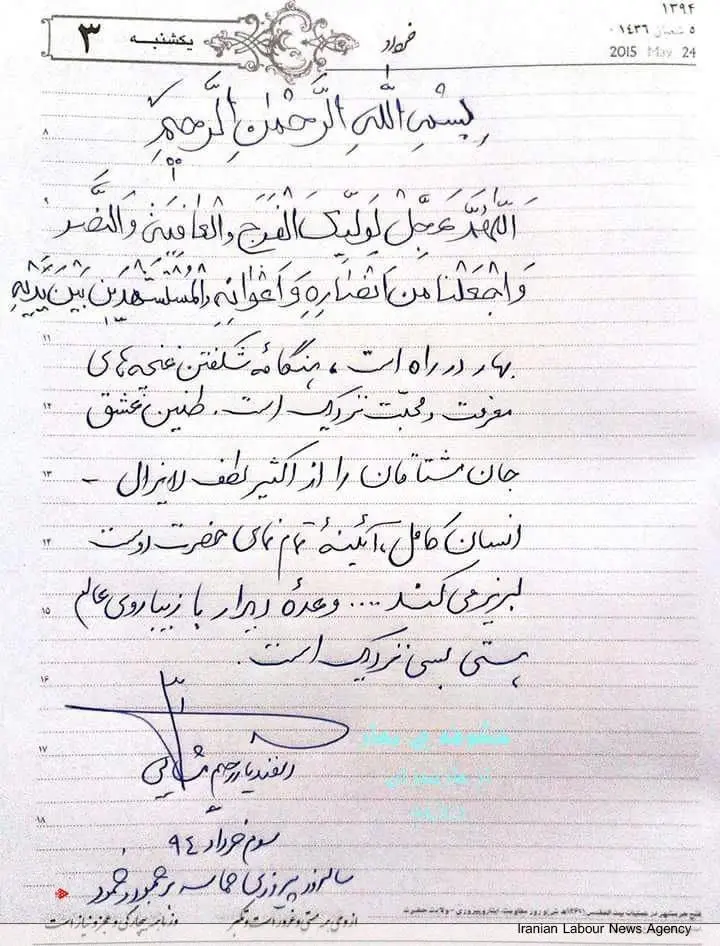 ۱۳۹۴
۵ شعبان ۱۴۳۶
2015 May 24
خرداد
یکشنبه
۳
بِسْمِ اللَّهِ الرَّحْمٰنِ الرَّحِیمِ
۸
اَللّهُمَّ عَجِّلْ لِوَلِیِّکَ الْفَرَجَ وَالْعافِیَةَ وَالنَّصْرَ
وَاجْعَلْنا مِنْ اَنْصارِهِ وَ اَعْوانِهِ وَالْمُسْتَشْهَدینَ بَیْنَ یَدَیْهِ
۱۱
بهار در راه است، هنگامهٔ شکفتن غنچه‌های
معرفت و محبّت نزدیک است. طنین عشق
۱۲
جان مشتاقان را از اکثیر لطف لایزال -
۱۳
انسان کامل، آئینهٔ تمام نمای حضرت دوست
۱۴
لبریز می کند .... وعدهٔ دیدار با زیباروی عالم
۱۵
هستی بسی نزدیک است.
۱۶
۱۷
اسفندیار رحیم مشائی
۱۸
سوم خرداد ۹۴
سالروز پیروزی حماسه بر جمود و خمود
فتح خرمشهر در عملیات بیت المقدس (۱۳۶۱ه‍ ش) و روز مقاومت، ایثار و پیروزی - ولادت حضرت
Iranian Labour News Agency